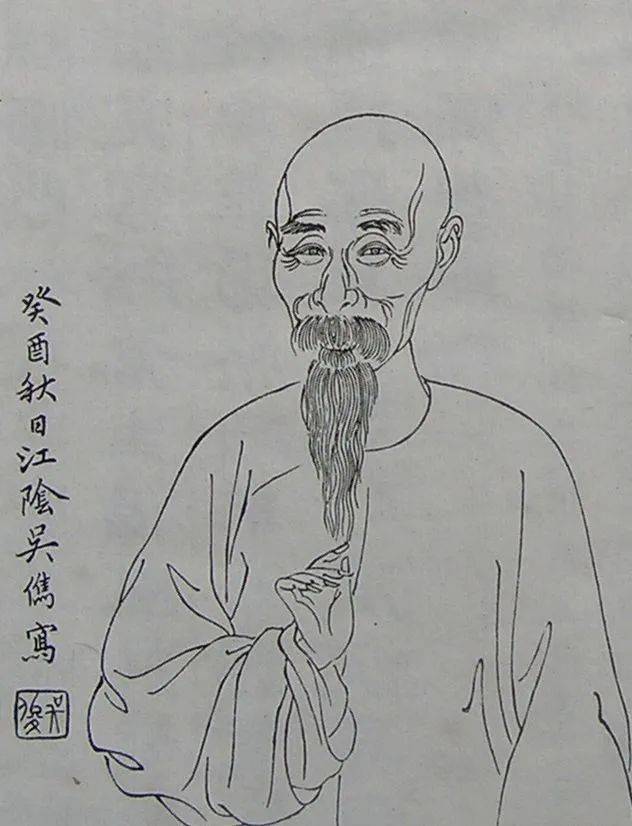 癸酉秋日江陰吳儁寫